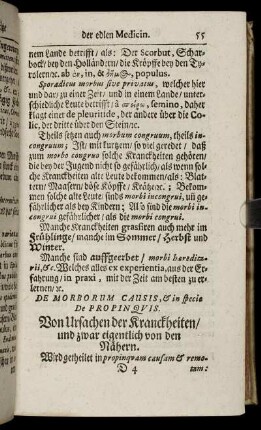 der edlen Medicin. 55
nem Lande betrifft/ als: Der Scorbut, Schar-
bock/ bey den Holländern/ die Kröpffe bey den Ty-
rolern &c. ab in, & populus.
Sporadicus morbus sive privatus, welcher hier
und dar/ zu einer Zeit/ und in einem Lande/ unter-
schiedliche Leute betrifft/ à semino, daher
klagt einer die pleuritide, der andere über die Co-
lic. der dritte über den Stein &c.
Theils setzen auch morbum congruum, theils in-
congruum; Ist mit kurtzem/ so viel geredet/ daß
zum morbo congruo solche Kranckheiten gehören/
die bey der Jugend nicht so gefährlich/ als wenn sol-
che Kranckheiten alte Leute bekommen/ als: Blat-
tern/ Masern/ böse Köpffe/ Krätze &c.; Bekom-
men solche alte Leute/ sind's morbi incongrui, uñ ge-
fährlicher als bey Kindern; Also sind die morbi in-
congrui gefährlicher/ als die morbi congrui.
Manche Kranckheiten grassiren auch mehr im
Frühlinge/ manche im Sommer/ Herbst und
Winter.
Manche sind auffgeerbet/ morbi hæredita-
rii, &c. Welches alles ex experientia, aus der Er-
fahrung/ in praxi, mit der Zeit am besten zu er-
lernen/ &c.
DE MORBORUM CAUSIS, & in specie
De PROPINQVIS.
Von Ursachen der Kranckheiten/
und zwar eigentlich von den
Nähern.
Wird getheilet in propinquam causam & remo-
D 4 tam: